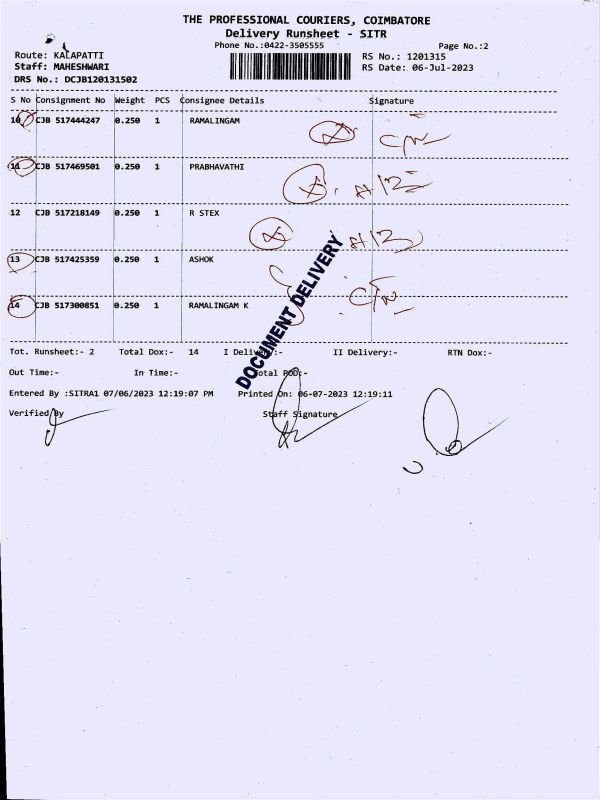 THE PROFESSIONAL COURIERS, COIMBATORE
Delivery Runsheet - SITR
Phone No.:0422-3505555 Page No.:2
Route: KALAPATTI RS No.: 1201315
Staff: MAHESHWARI RS Date: 06-Jul-2023
DRS No.: DCJB120131502
S No Consignment No Weight PCS Consignee Details Signature
10 CJB 517444247 0.250 1 RAMALINGAM
11 CJB 517469501 0.250 1 PRABHAVATHI
12 CJB 517218149 0.250 1 R STEX
13 CJB 517425359 0.250 1 ASHOK
14 CJB 517300851 0.250 1 RAMALINGAM K
DOCUMENT DELIVERY
Tot. Runsheet:- 2 Total Dox:- 14 I Delivery:- II Delivery:- RTN Dox:-
Out Time:- In Time:- Total POD:-
Entered By :SITRA1 07/06/2023 12:19:07 PM Printed On: 06-07-2023 12:19:11
Verified By Staff Signature